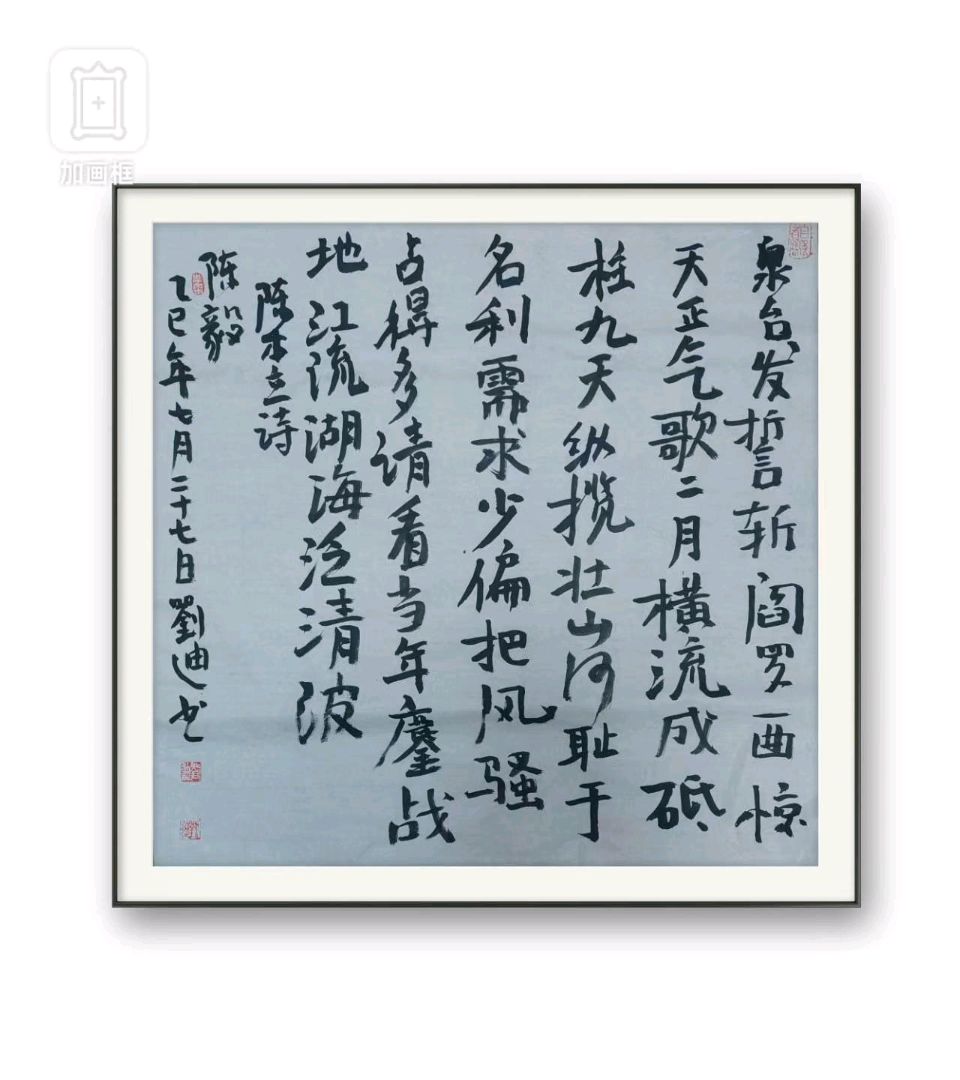 加画框
泉台发誓斩阎罗一曲惊
天正气歌二月横流成砥
柱九天纵揽壮山河耻于
名利需求少偏把风骚
占得多请看当年鏖战
地江流湖海泛清波
陈本立诗
陈毅
乙巳年七月二十七日劉迪书